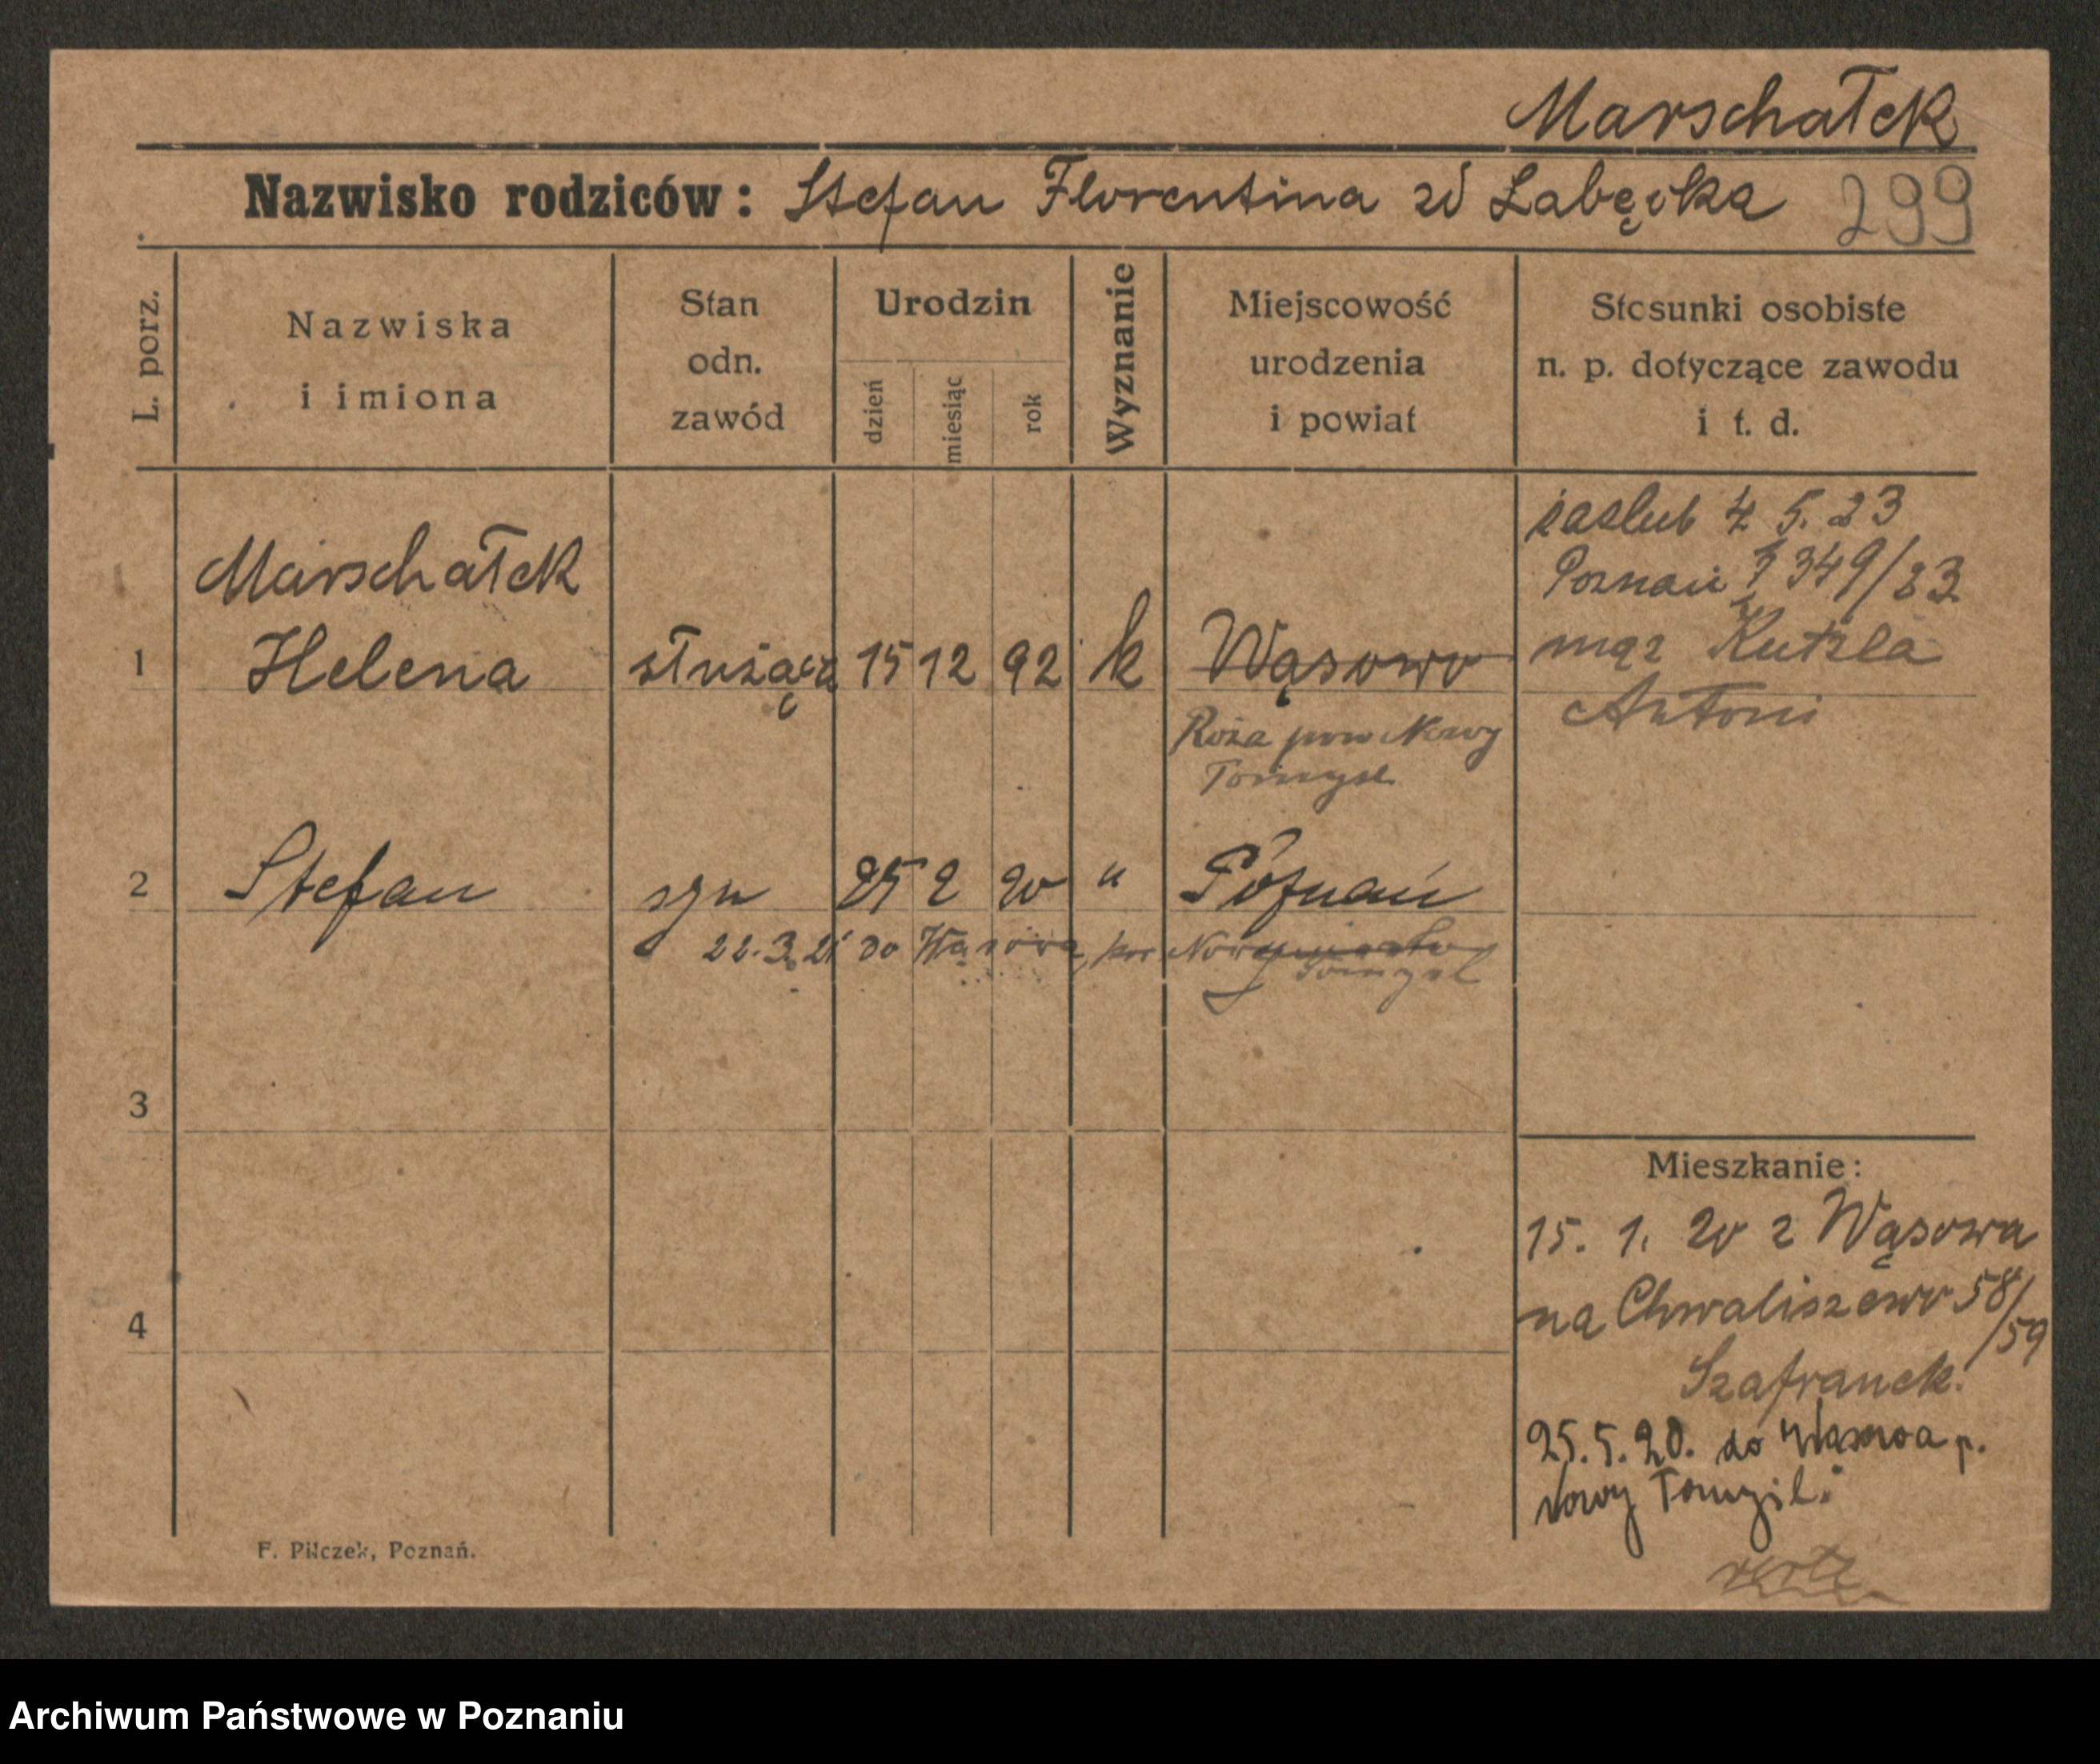 Marschałek
Nazwisko rodziców: Stefan Florentina zd Łabęcka 299
L. porz.
Nazwiska
i imiona
Stan
odn.
zawód
Urodzin
dzień
miesiąc
rok
Wyznanie
Miejscowość
urodzenia
i powiat
Stosunki osobiste
n. p. dotyczące zawodu
i t. d.
zaslub 4 5. 23
Poznań 349/23
mąż Kutzla
Antoni
Marschałek
1 Helena służąca 15 12 92 k Wąsowo
Roża pow Nowy
Tomysl
2 Stefan syn 25 2 20 " Poznań
22.3.21 do Wąsowa, Nowy
Tomysl
3
4
Mieszkanie:
15. 1. 20 z Wąsowa
na Chwaliszewo 58/59
Szafranek.
25.5.20. do Wąsowa p.
Nowy Tomysl.
F. Pilczek, Poznań.
Archiwum Państwowe w Poznaniu